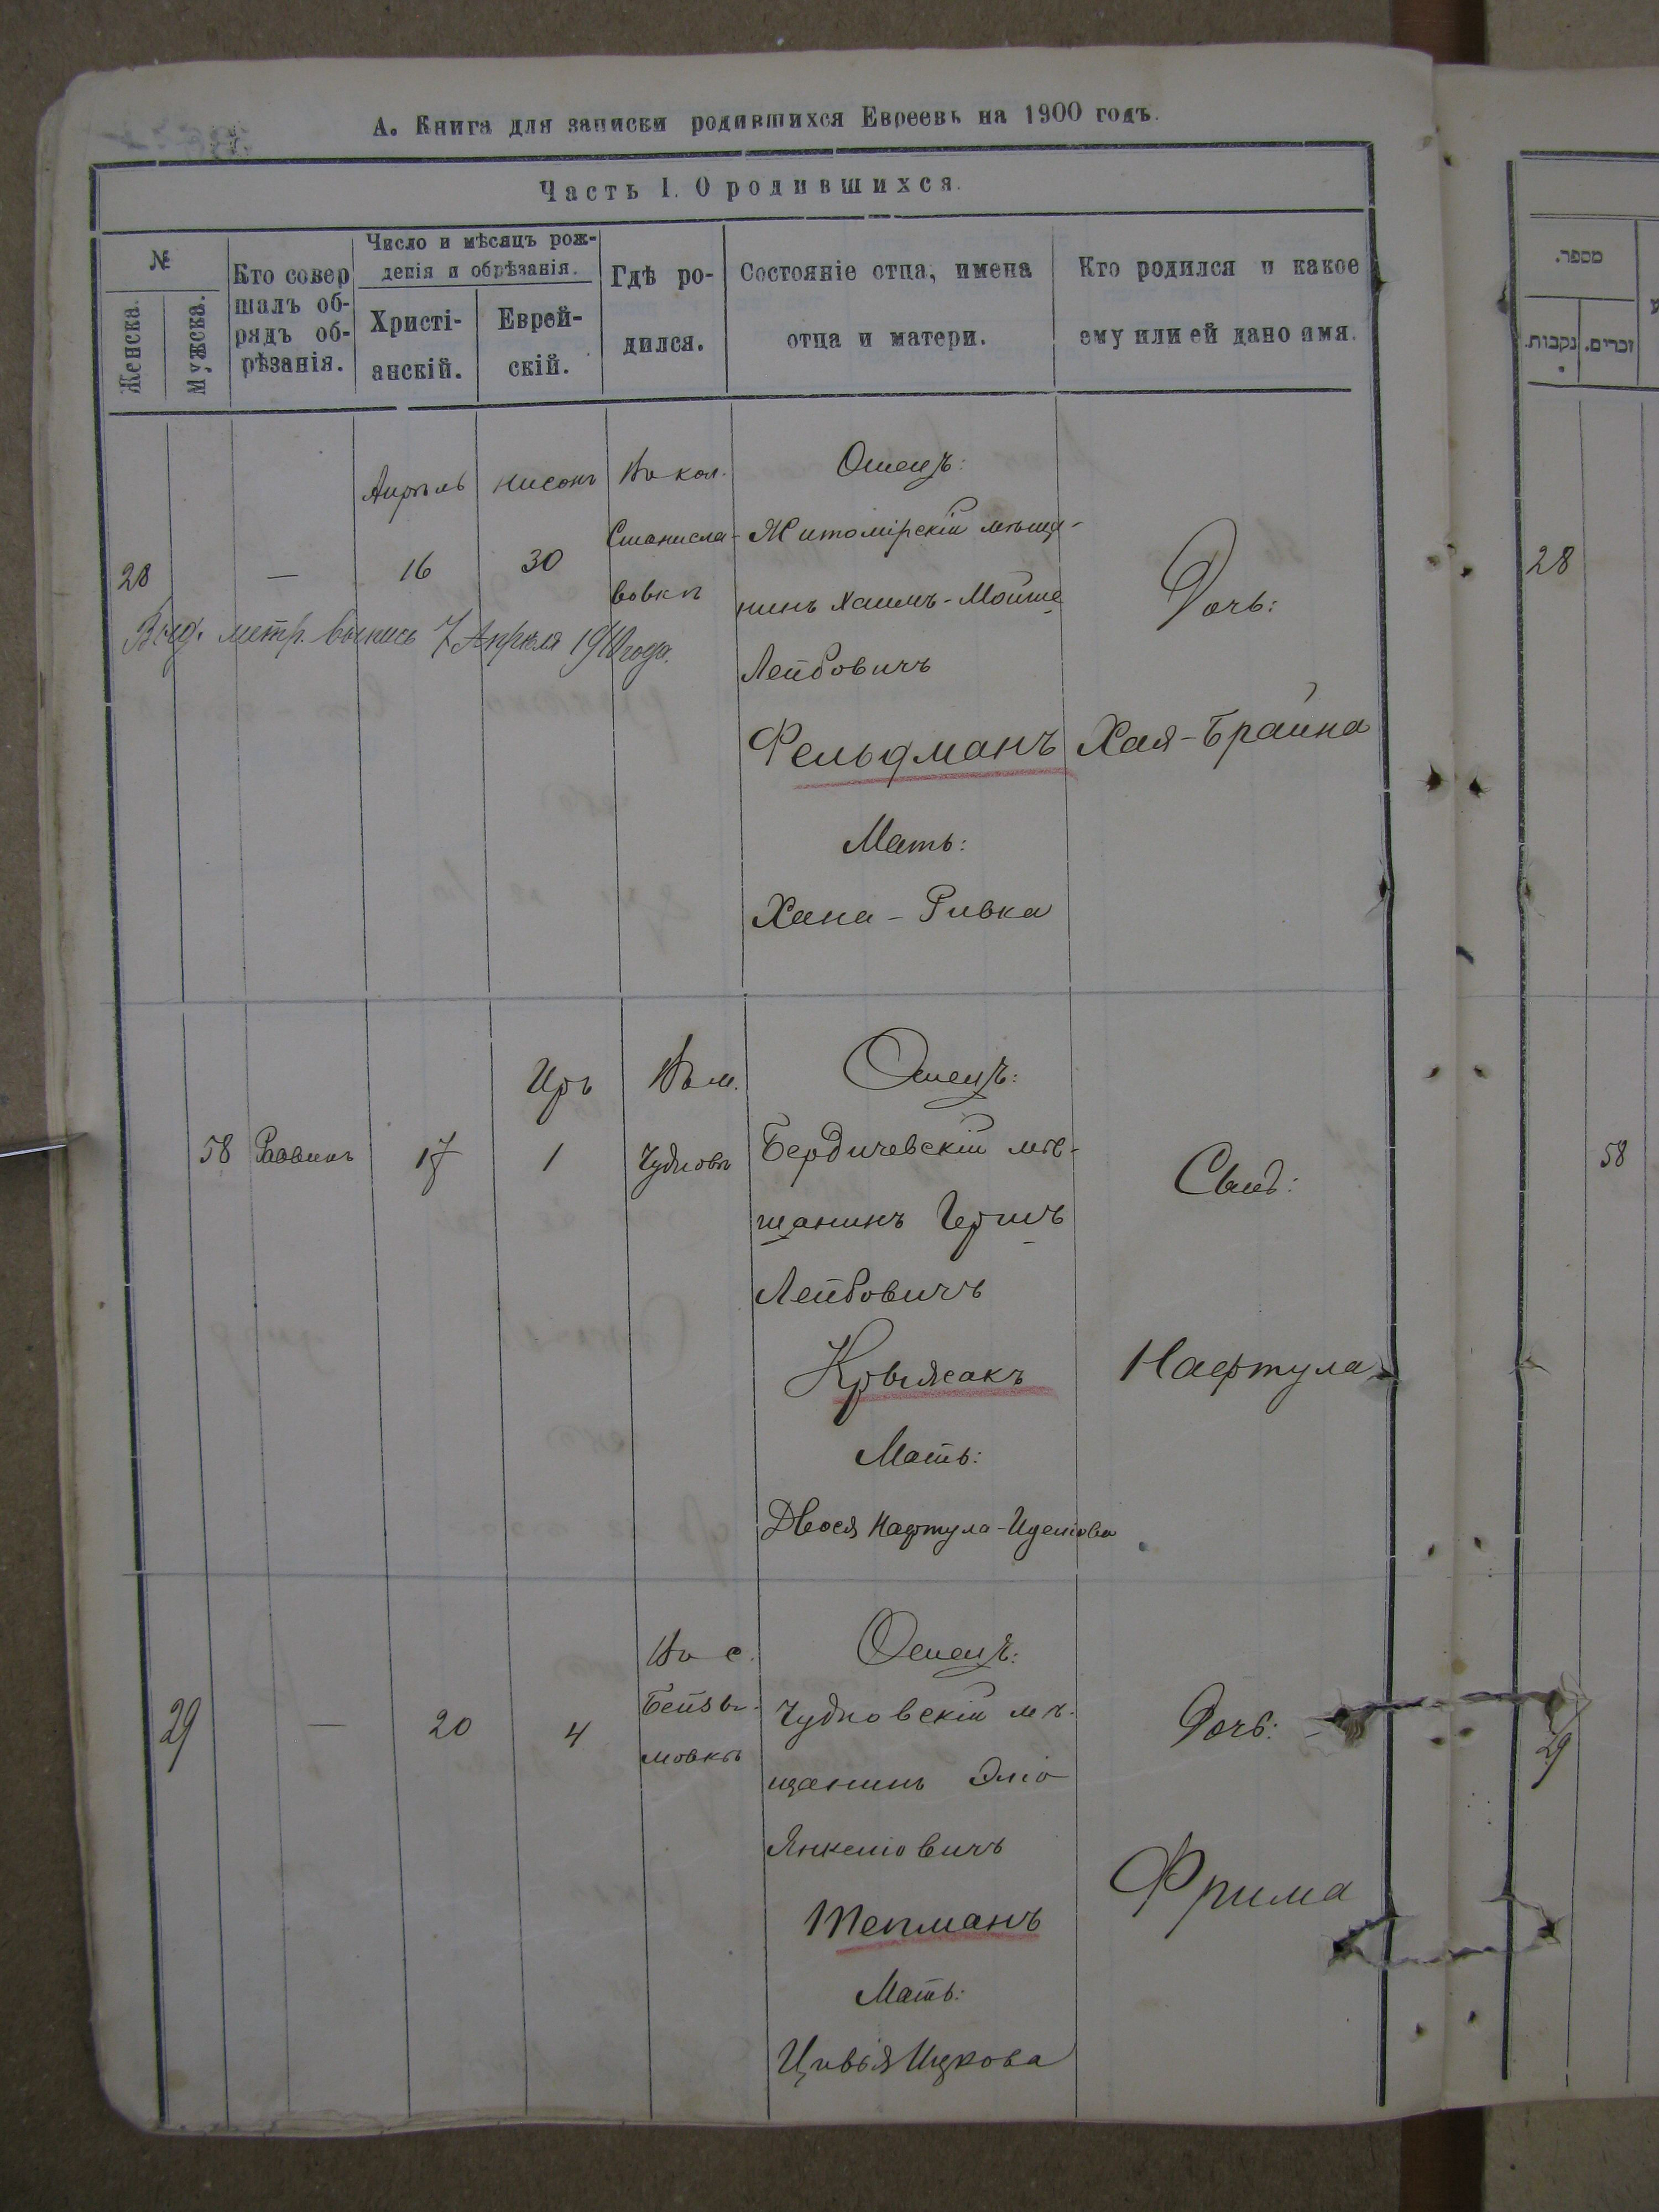 А. Книга для записки родившихся Евреевъ на 1900 годъ.
Часть I. О родившихся.
№
Женска.
Мужска.
Кто совер
шалъ об-
рядъ об-
рѣзанія.
Число и мѣсяцъ рож-
денія и обрѣзанія.
Христі-
анскій.
Еврей-
скій.
Гдѣ ро-
дился.
Состояніе отца, имена
отца и матери.
Кто родился и какое
ему или ей дано имя.
28
—
Апрѣль
16
Нисонъ
30
Въ кол.
Станисла-
вовкѣ
Отецъ:
Житомірскій мѣща-
нинъ Хаимъ-Мойше
Лейбовичъ
Фельдманъ
Мать:
Хана-Ривка
Дочь:
Хая-Брайна
Выд. метр. выпись 7 Апрѣля 1910 года.
58
Раввинъ
17
Иръ
1
Въ м.
Чудновѣ
Отецъ:
Бердичевскій мѣ-
щанинъ Гершъ
Лейбовичъ
Крыжакъ
Мать:
Двося Нафтула-
Сынъ:
Нафтула
29
—
20
4
Въ с.
Бейзы-
мовкѣ
Отецъ:
Чудновскій мѣ-
щанинъ Эліо
Янкеліовичъ
Тепманъ
Мать:
Цивья Ицкова
Дочь:
Фрима
מספר.
נקבות.
זכרים.
28
58
29